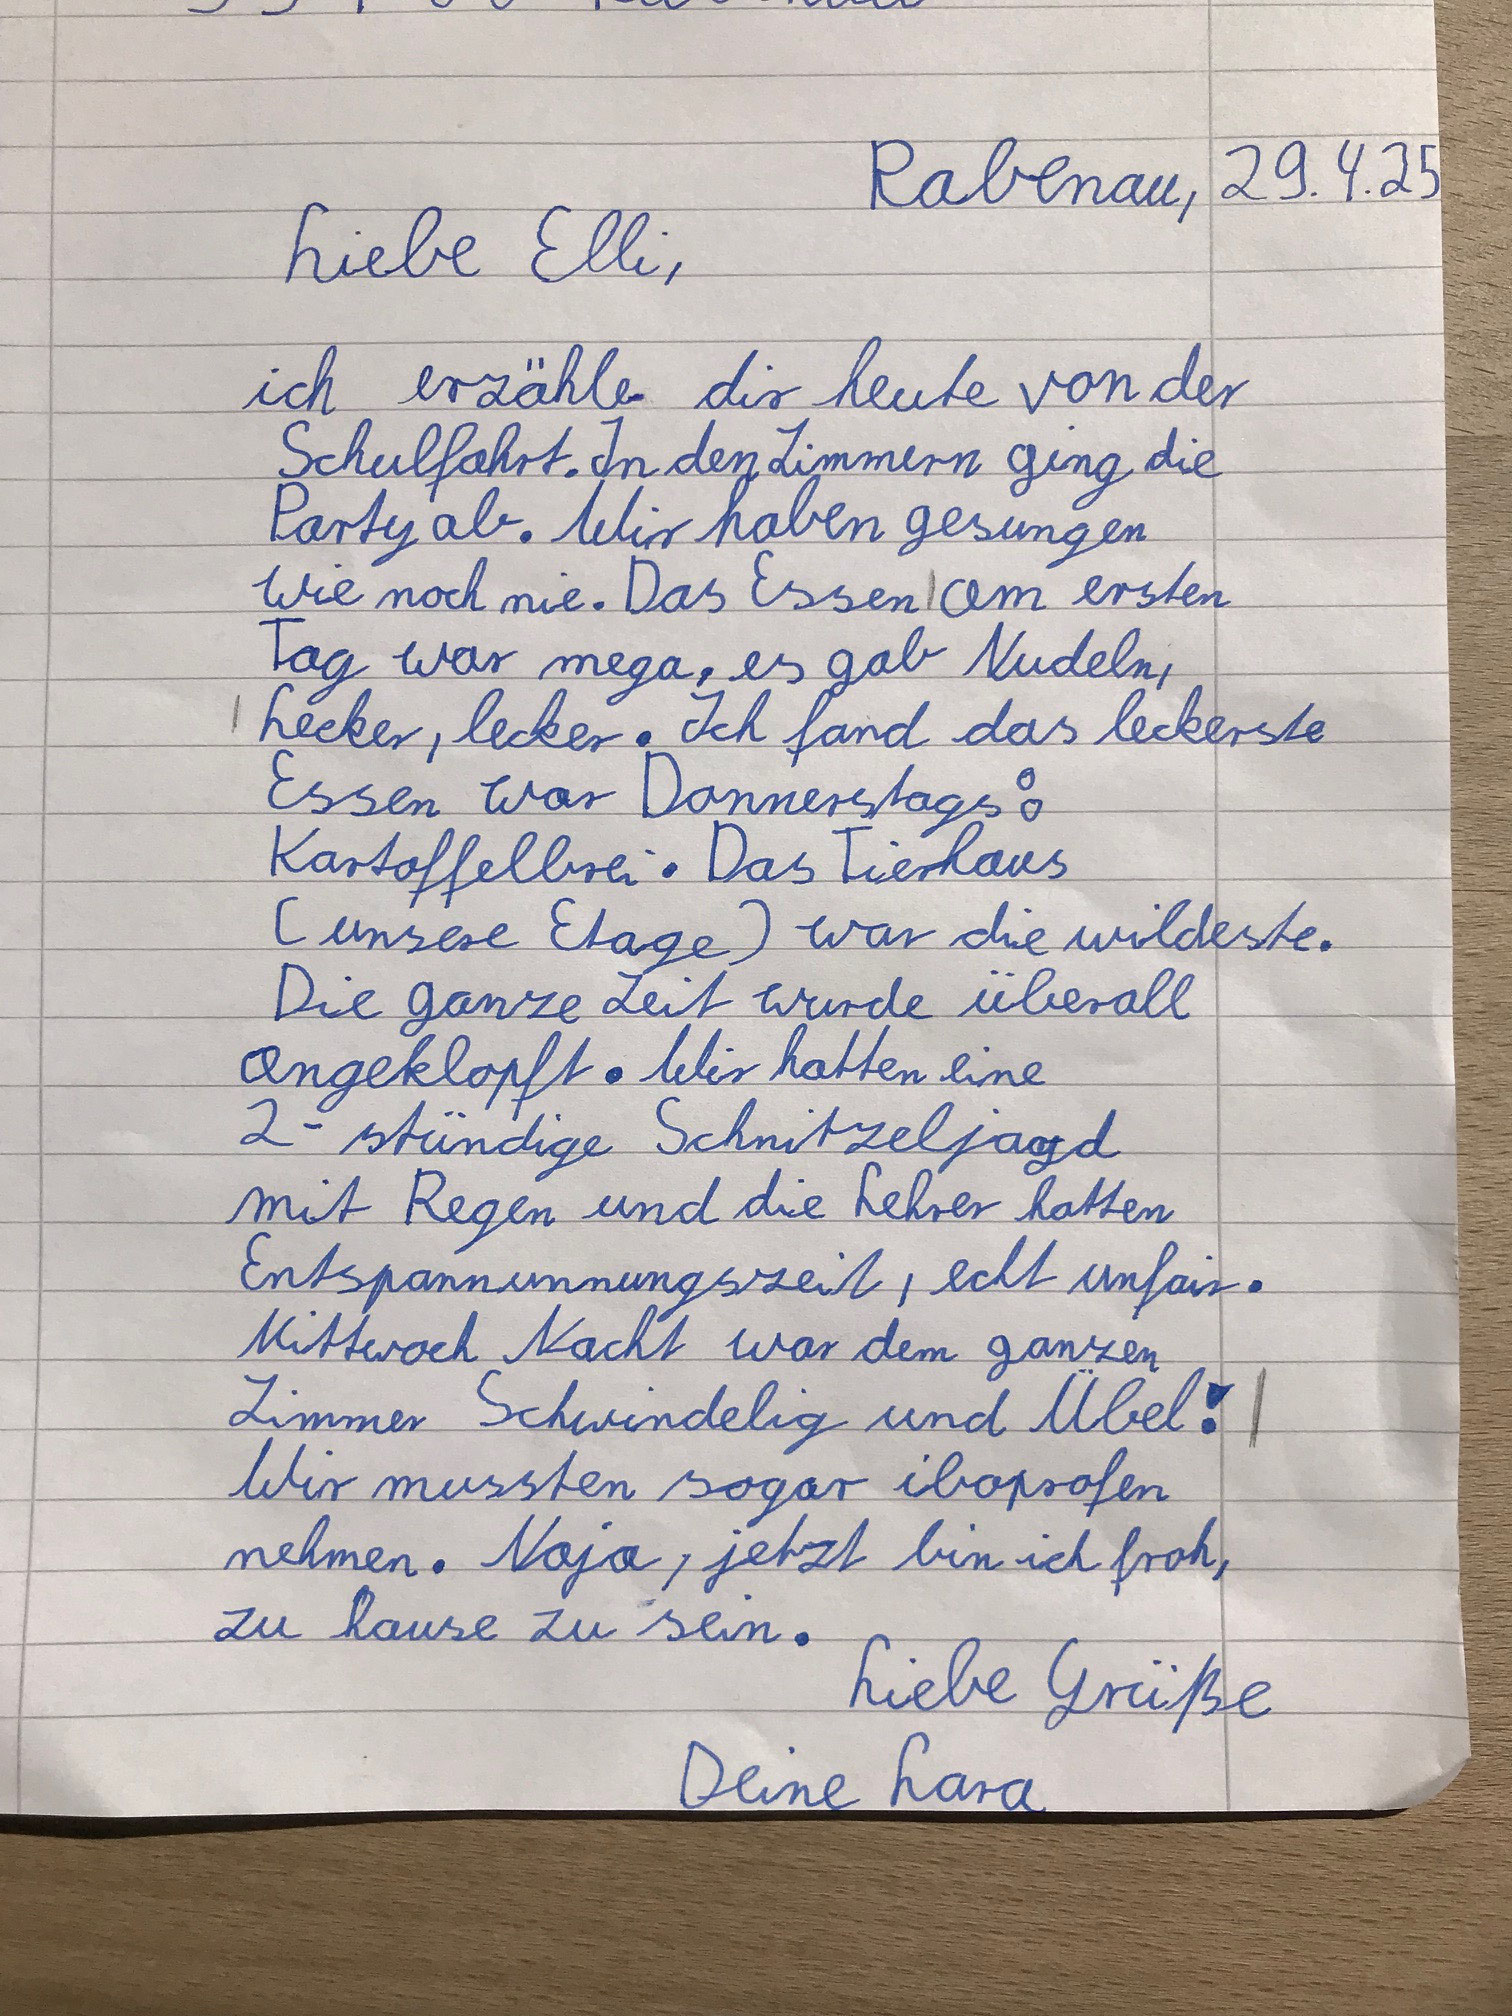 Rabenau, 29.4.25
Liebe Elli,
ich erzähle dir heute von der
Schulfahrt. In den Zimmern ging die
Party ab. Wir haben gesungen
wie noch nie. Das Essen am ersten
Tag war mega, es gab Nudeln,
Lecker, lecker. Ich fand das leckerste
Essen war Donnerstags:
Kartoffelbrei. Das Tierhaus
(unsere Etage) war die wildeste.
Die ganze Zeit wurde überall
angeklopft. Wir hatten eine
2-stündige Schnitzeljagd
mit Regen und die Lehrer hatten
Entspannunnungszeit, echt unfair.
Mittwoch Nacht war dem ganzen
Zimmer Schwindelig und Übel!
Wir mussten sogar iboprofen
nehmen. Naja, jetzt bin ich froh,
zu hause zu sein.
Liebe Grüße
Deine Lara